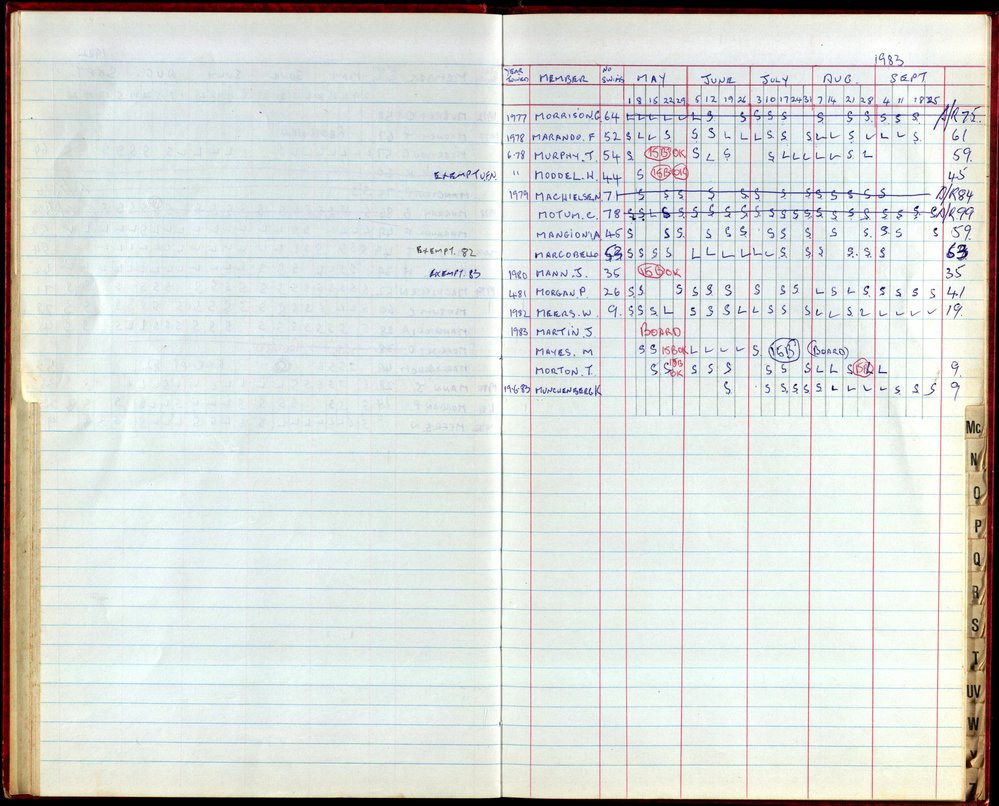 1983
YEAR JOINED MEMBER NO SWIMS MAY JUNE JULY AUG. SEPT
1 8 15 22 29 5 12 19 26 3 10 17 24 31 7 14 21 28 4 11 18 25
1977 MORRISON G 64 L L L L L L S S S S S S S S S S A/R 75.
1978 MARANDO. F 52 S L L S S S L L L L S S S L L S L L L S 61
6.78 MURPHY. T. 54 S 15B OK S L S S L L L L S L 59.
EXEMPT " MODDEL. H. 44 S 15B OK 45
1979 MACHIELSEN 71 S S S S S S S S S S S S A/R 84
MOTUM. C. 78 S S L S S S S S S S S S S S S S S S S S S S A/R 99
MANGIONIA 45 S S S S S S S S S S S S S S 59.
EXEMPT. 82 MARCOBELLO S S S S L L L L L L S S S S S S 63
EXEMPT. 83 1980 MANN J. 35 15B OK 35
4.81 MORGAN P. 26 S S S S S S S S S S L S L S S S S S 41
1982 MEERS. W. 9. S S S L S S S L L S S S L L S L L L L L 19.
1983 MARTIN J BOARD
MAYES. M S S 15B OK L L L L S 15B BOARD
MORTON. T. S S 15B OK S S S S S S L L S 15B L L 9.
19.6.83 MUNCHENBERG K S S S S S S L L L L S S S 9
Mc
N
O
P
Q
R
S
T
UV
W